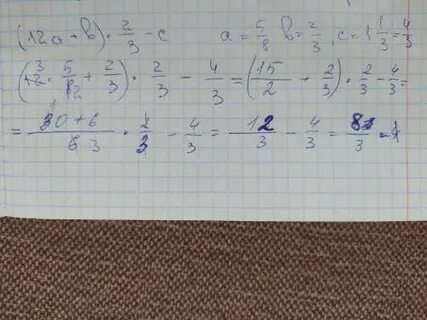 (12a + b) · 2/3 - c a = 5/8 b = 2/3, c = 1 1/3 = 4/3
(12 · 5/8 + 2/3) · 2/3 - 4/3 = (15/2 + 2/3) · 2/3 - 4/3 =
= 30 + 6/6 · 2/3 - 4/3 = 12/3 - 4/3 = 8/3